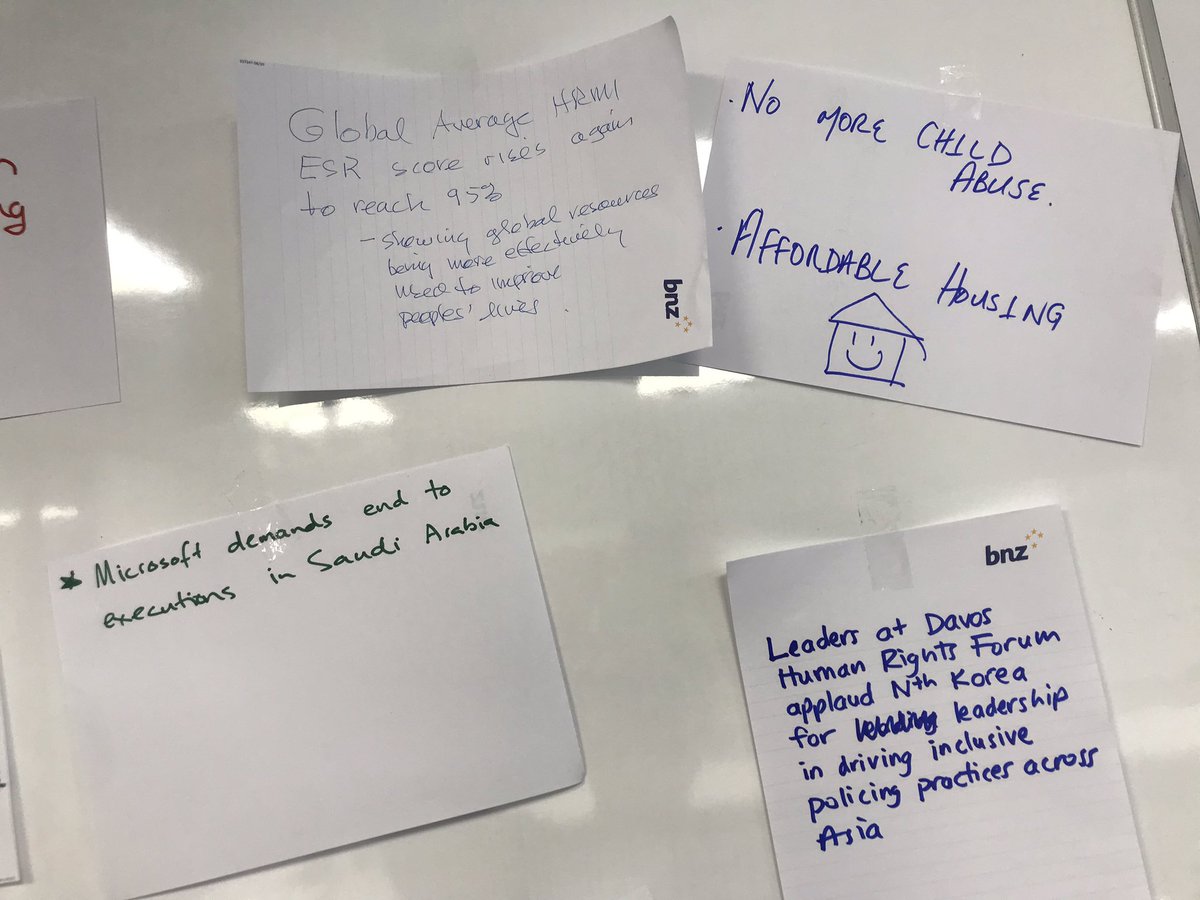 Global Average HRMI
ESR score rises again
to reach 95%
- showing global resources
being more effectively
used to improve
peoples' lives.
bnz
· No MORE CHILD
ABUSE.
· AFFORDABLE HOUSING
* Microsoft demands end to
executions in Saudi Arabia
bnz
Leaders at Davos
Human Rights Forum
applaud Nth Korea
for leadership
in driving inclusive
policing practices across
Asia